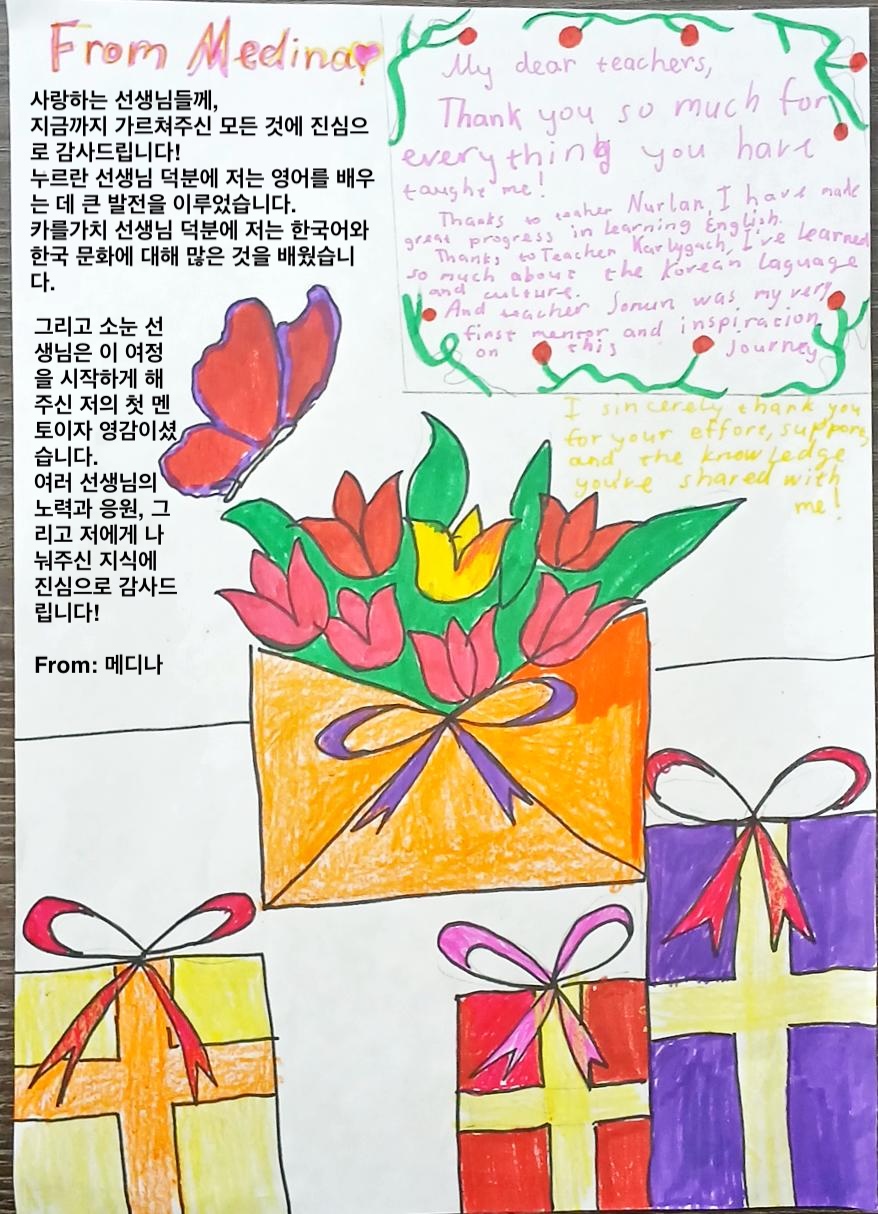 From Medina
사랑하는 선생님들께,
지금까지 가르쳐주신 모든 것에 진심으
로 감사드립니다!
누르란 선생님 덕분에 저는 영어를 배우
는 데 큰 발전을 이루었습니다.
카를가치 선생님 덕분에 저는 한국어와
한국 문화에 대해 많은 것을 배웠습니
다.
그리고 소눈 선
생님은 이 여정
을 시작하게 해
주신 저의 첫 멘
토이자 영감이셨
습니다.
여러 선생님의
노력과 응원, 그
리고 저에게 나
눠주신 지식에
진심으로 감사드
립니다!
From: 메디나
My dear teachers,
Thank you so much for
everything you have
taught me!
Thanks to teacher Nurlan, I have made
great progress in learning English.
Thanks to Teacher Karlygach, I've learned
so much about the Korean laguage
and culture.
And teacher Sonun was my very
first mentor and inspiration
on this journey
I sincerely thank you
for your effort, support,
and the knowledge
you've shared with
me!